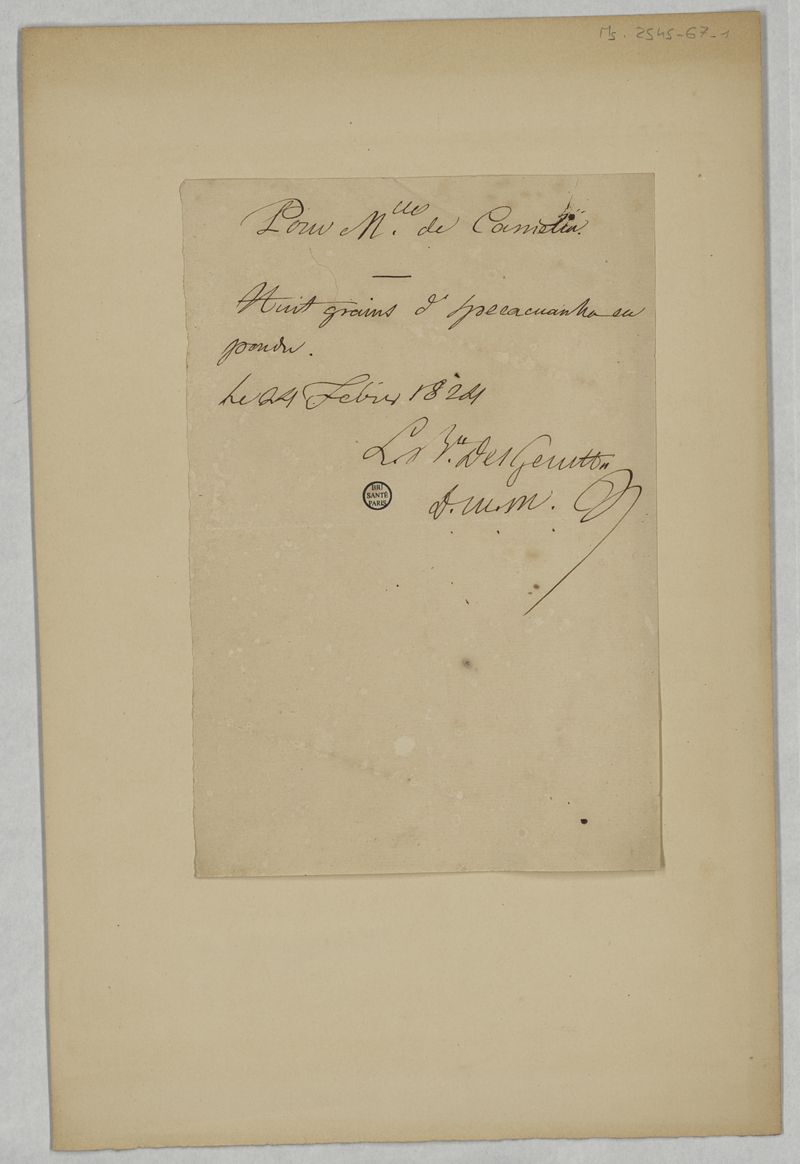 Ms. 2545-67-1
Pour M.lle de
Huit grains d'ipecacuanha en
poudre.
Le 24 Février 1824
Le Bn. DesGenettes
D.m.m.
BIU
SANTÉ
PARIS